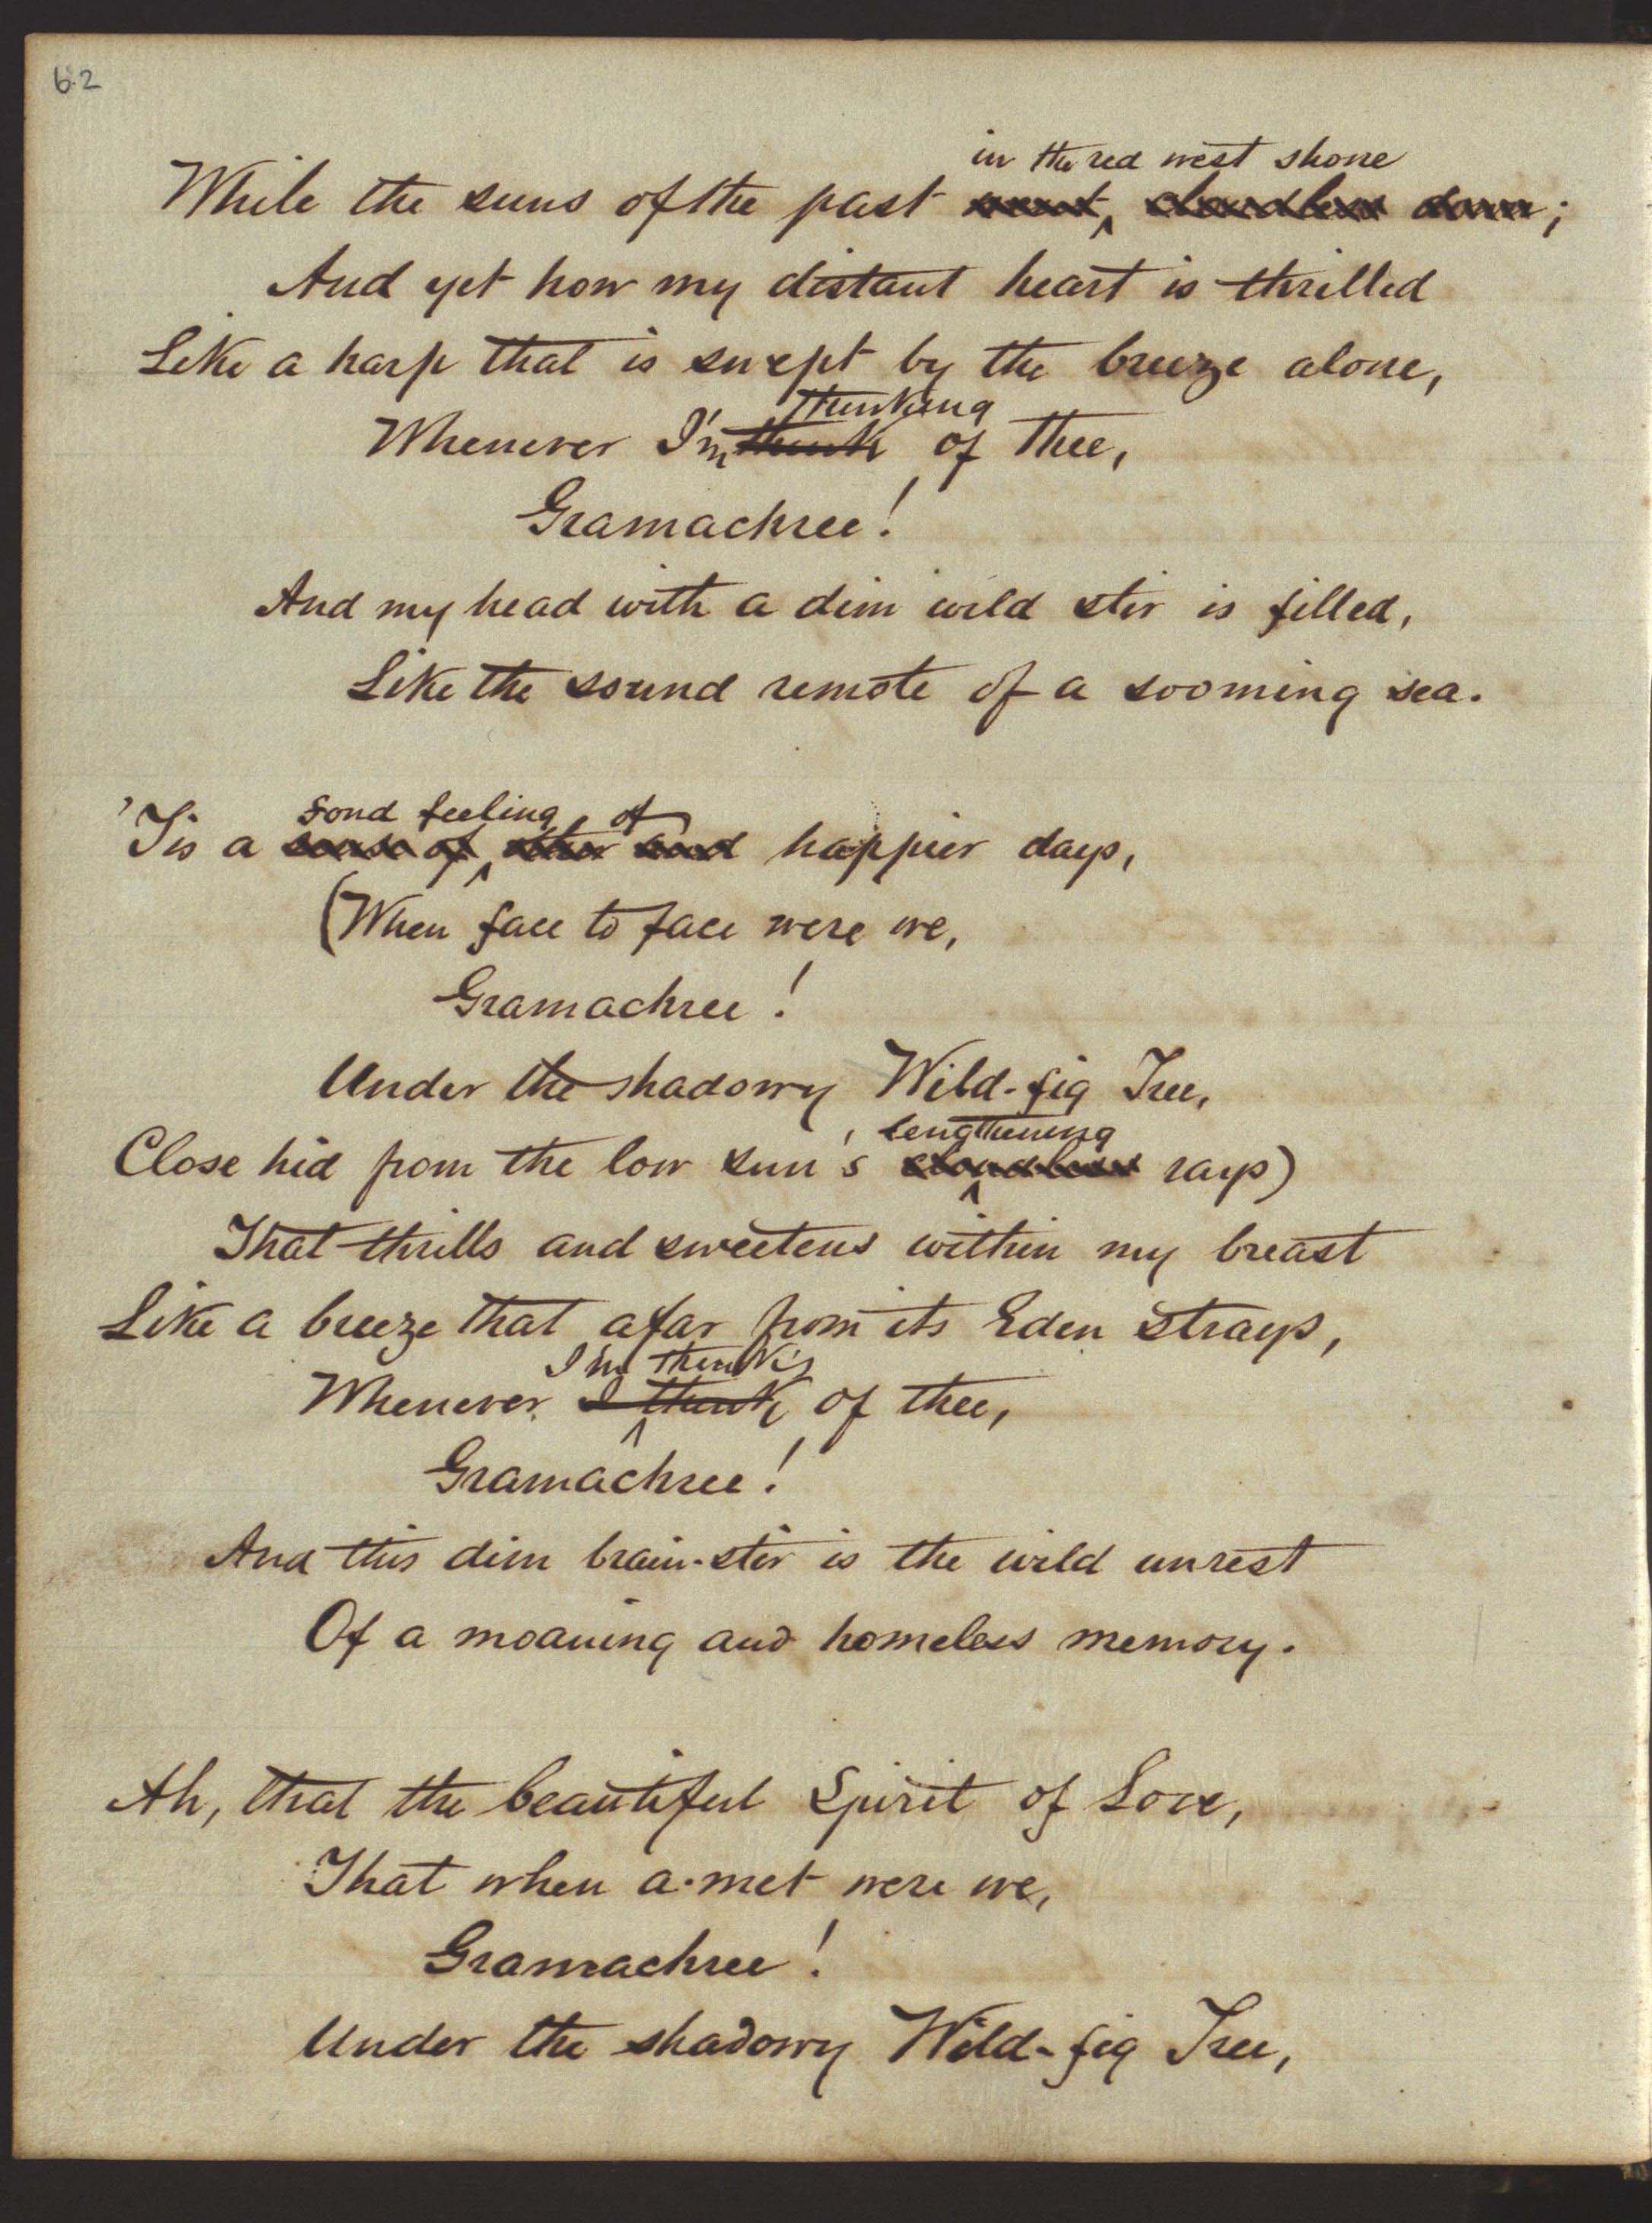 62
in the red west shone
While the suns of the past went, cloudless down;
And yet how my distant heart is thrilled
Like a harp that is swept by the breeze alone,
thinking
Whenever I'm think of thee,
Gramachree!
And my head with a dim wild stir is filled,
Like the sound remote of a sooming sea.
fond feeling of
'Tis a sense of other and happier days,
(When face to face were we,
Gramachree!
Under the shadowy Wild-fig Tree,
lengthening
Close hid from the low sun's cloudless rays)
That thrills and sweetens within my breast
Like a breeze that afar from its Eden strays,
I'm think'g
Whenever I think of thee,
Gramachree!
And this dim brain-stir is the wild unrest
Of a moaning and homeless memory.
Ah, that the beautiful Spirit of Love,
That when a-met were we,
Gramachree!
Under the shadowy Wild-fig Tree,